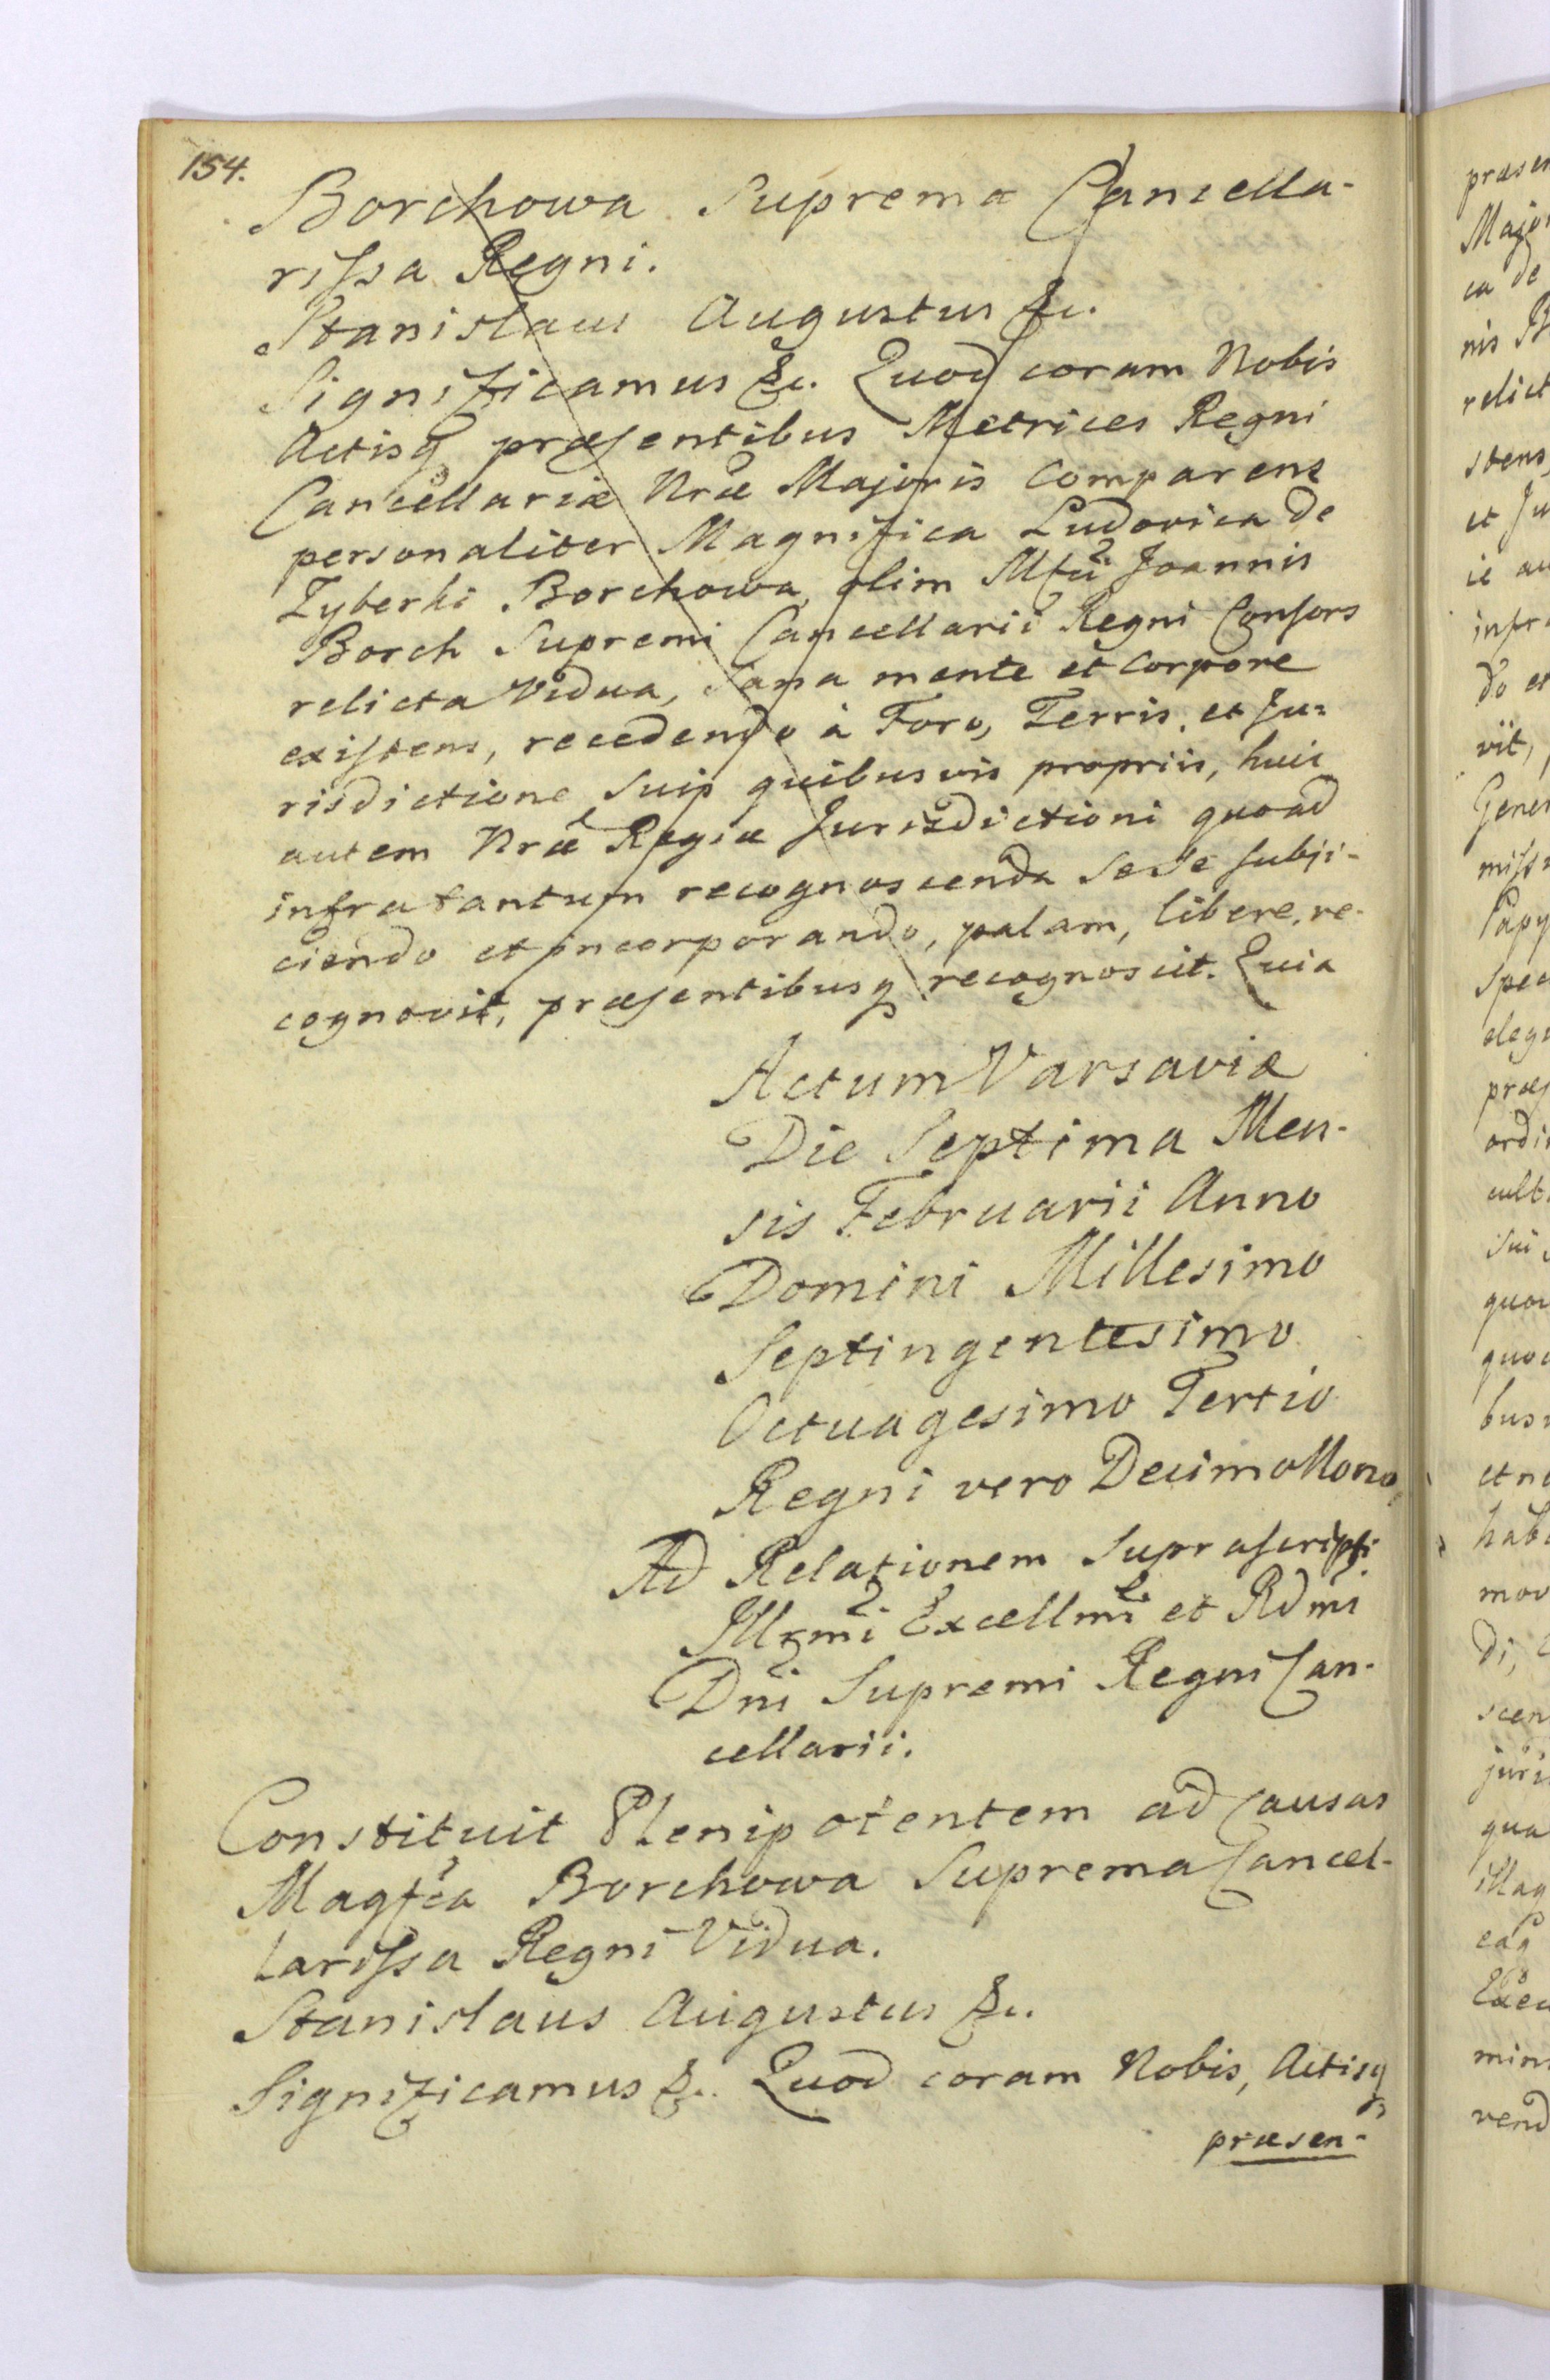 154.
Borchowa Suprema Cancella-
rissa Regni.
Stanislaus Augustus &c.
Significamus &c. Quod coram Nobis
Actisq præsentibus Metrices Regni
Cancellariæ Nræ Majoris Comparens
personaliter Magnifica Ludovica de
Zyberki Borchowa, olim Mfci Joannis
Borch Supremi Cancellarii Regni Consors
relicta Vidua, Sana mente et Corpore
existens, recedendo à Foro, Terris, et Ju=
risdictione suis quibusvis propriis, huic
autem Nræ Regiæ Jurisdictioni quoad
infra tantum recognoscenda sese subji-
ciendo et incorporando, palam, libere, re-
cognovit, præsentibusq recognoscit. Quia
Actum Varsaviæ
Die Septima Men-
sis Februarii Anno
Domini Millesimo
Septingentesimo
Octuagesimo Tertio
Regni vero Decimo Nono,
Ad Relationem Suprascripti
Illrmi Excellmi et Rdmi
Dni Supremi Regni Can-
cellarii.
Constituit Plenipotentem ad Causas
Magfca Borchowa Suprema Cancel-
larissa Regni Vidua.
Stanislaus Augustus &c.
Significamus &c. Quod coram Nobis, Actisq
præsen-